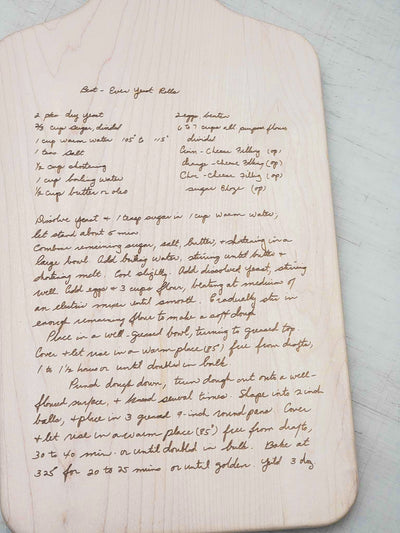 Best-Ever Yeast Rolls
2 pks dry yeast
2/3 cup sugar, divided
1 cup warm water 105° to 115°
1 teas salt
1/2 cup shortening
1 cup boiling water
1/2 cup butter or oleo
2 eggs beaten
6 to 7 cups all purpose flour
divided
Cinn-Cheese Filling (op)
Orange-Cheese Filling (op)
Choc-Cheese Filling (op)
sugar Glaze (op)
Dissolve yeast + 1 teasp sugar in 1 cup warm water,
let stand about 5 min
Combine remaining sugar, salt, butter, + shortening in a
large bowl. Add boiling water, stirring until butter +
shortening melt. Cool slightly. Add dissolved yeast, stirring
well. Add eggs + 3 cups flour, beating at medium of
an electric mixer until smooth. Gradually stir in
enough remaining flour to make a soft dough
Place in a well-greased bowl, turning to grease top.
Cover + let rise in a warm place (85°) free from drafts,
1 to 1 1/2 hours or until doubled in bulk
Punch dough down, turn dough out onto a well-
floured surface, + knead several times. Shape into 2 inch
balls, + place in 3 greased 9-inch round pans. Cover
+ let rise in a warm place (85°) free from drafts,
30 to 40 min. or until doubled in bulk. Bake at
325° for 20 to 25 mins or until golden. Yield 3 doz